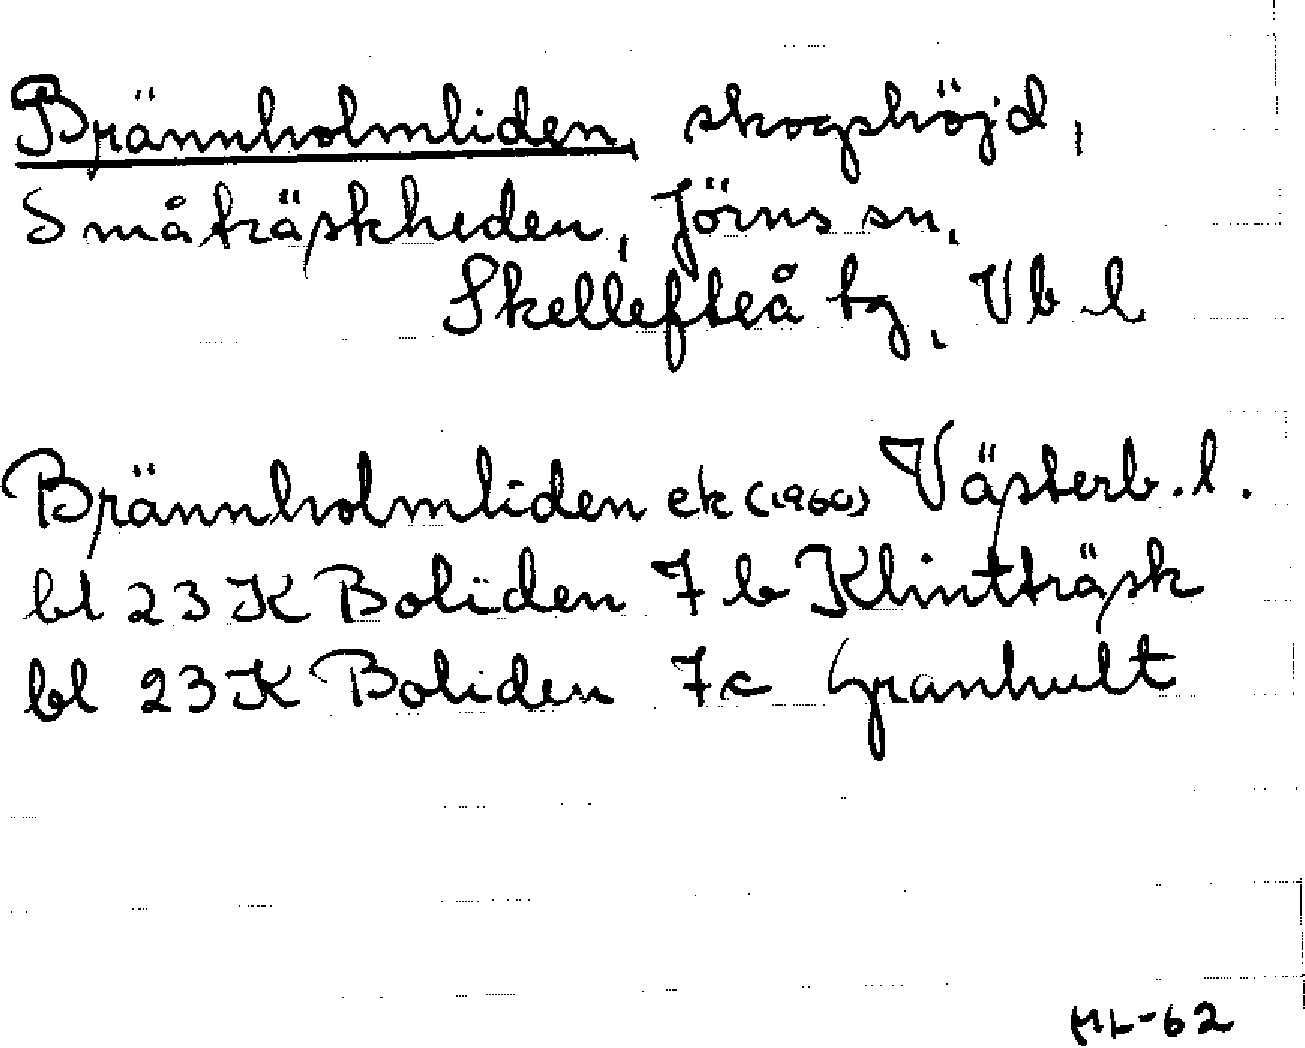 Brännholmliden, skogshöjd,
Småträskheden, Jörns sn,
Skellefteå tg, Vb l
Brännholmliden ek (1960) Västerb. l.
bl 23 K Boliden 7 b Klintträsk
bl 23 K Boliden 7c Granhult
ML-62